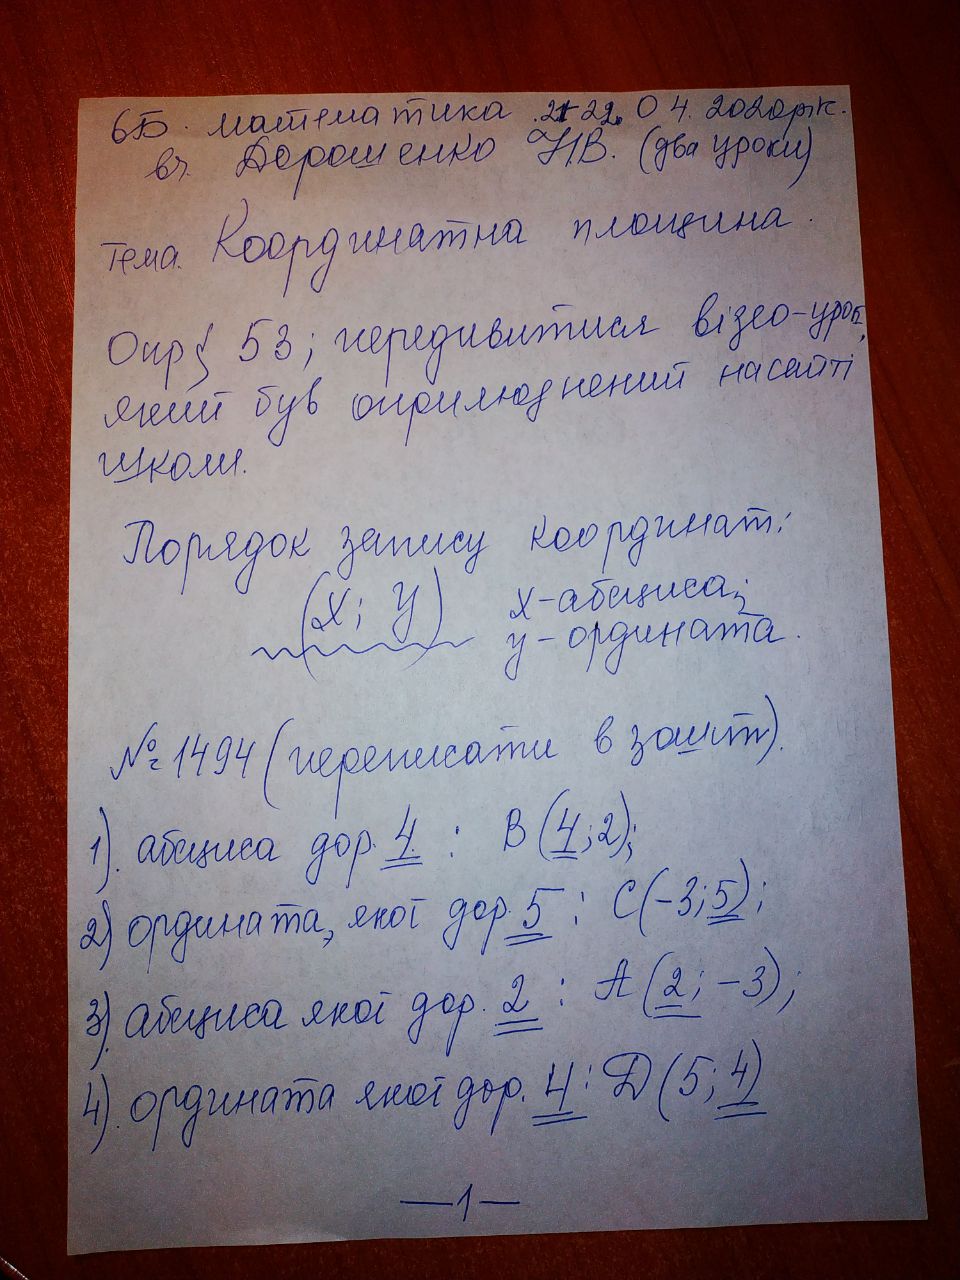 6Б. математика .21-22. 04. 2020рік.
вч. Дорошенко Н.В. (два уроки)
Тема. Координатна площина.
Опр § 53; передивитися відео-урок,
який був оприлюднений на сайті
школи.
Порядок запису координат:
(x; y) x-абсциса;
y-ордината.
№1494 (переписати в зошит).
1). абсциса дор. 4 : B(4;2);
2) ордината, якої дор. 5 : C(-3;5);
3). абсциса якої дор. 2 : A(2;-3);
4). ордината якої дор. 4 : D(5;4)
—1—